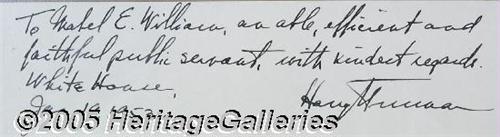 To Mabel E. William, an able, efficient and
faithful public servant, with kindest regards.
White House,
Jan. 1953 Harry Truman
©2005 HeritageGalleries